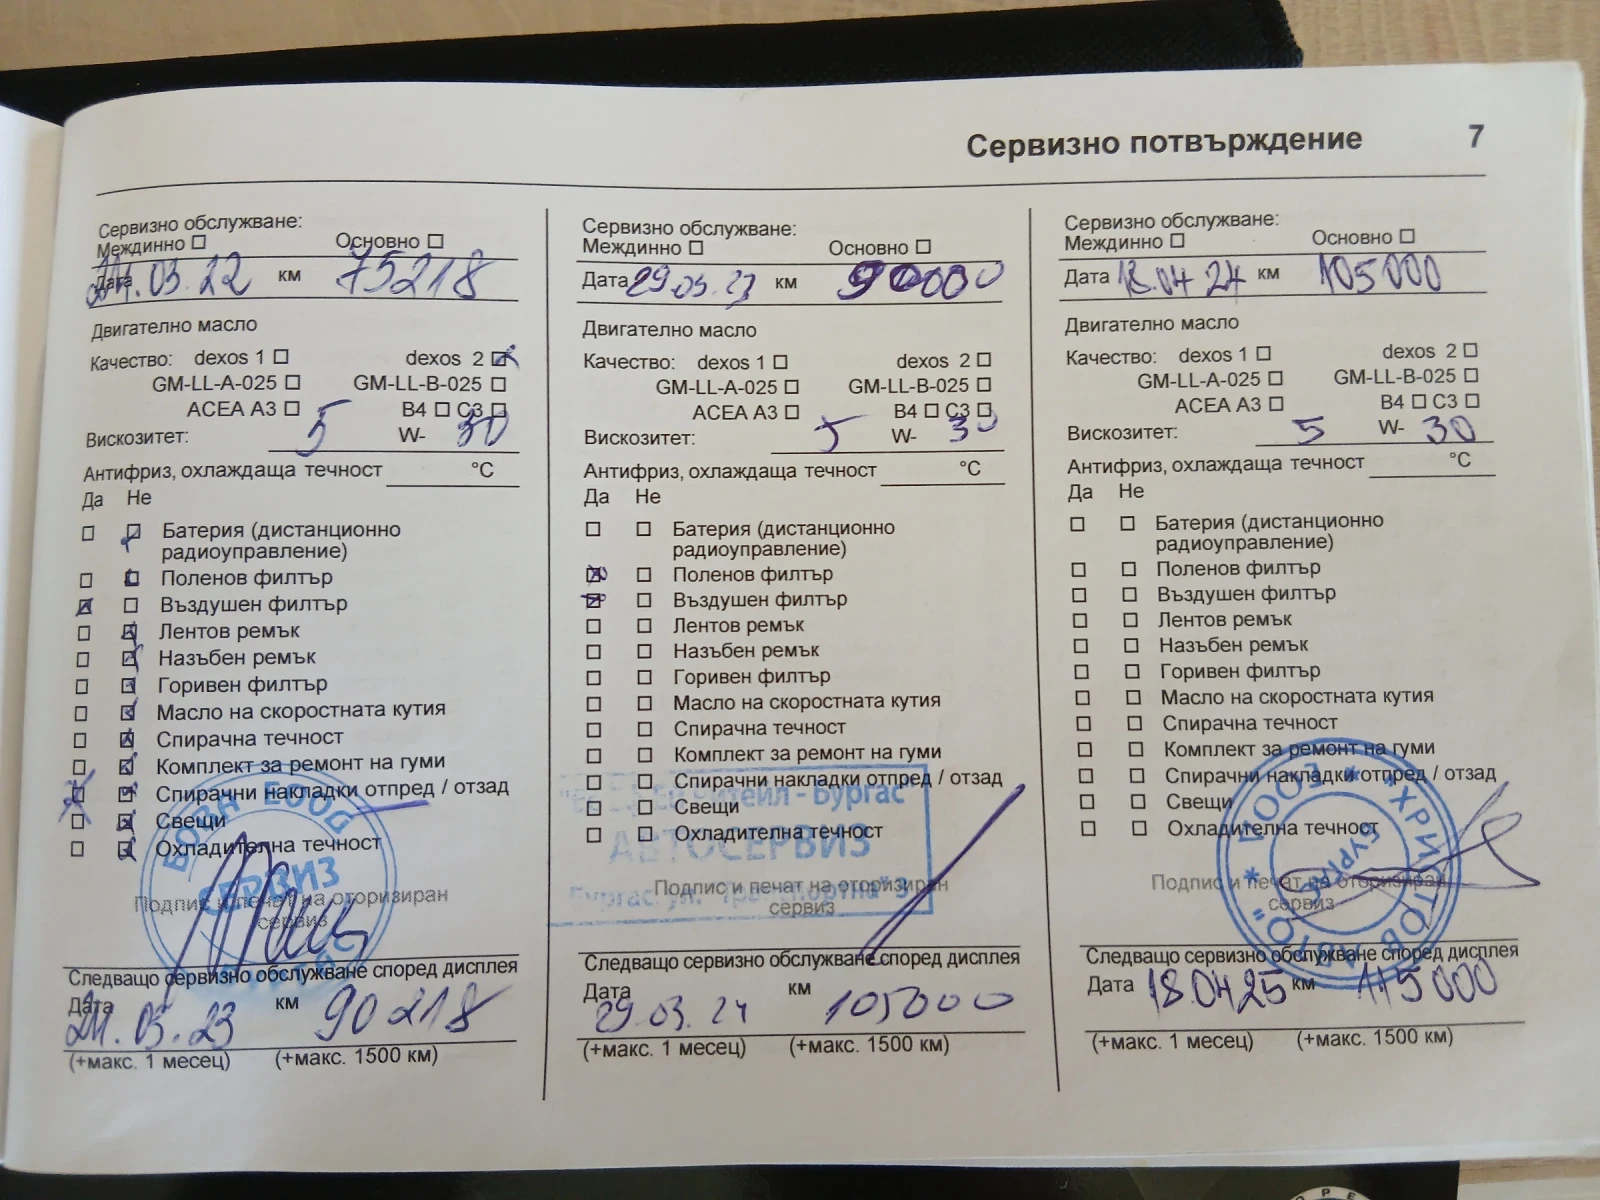 Сервизно потвърждение 7
Сервизно обслужване:
Междинно Основно
Дата 24.03.22 км 75218
Двигателно масло
Качество: dexos 1 dexos 2
GM-LL-A-025 GM-LL-B-025
ACEA A3 B4 C3
Вискозитет: 5 W- 30
Антифриз, охлаждаща течност °C
Да Не
Батерия (дистанционно
радиоуправление)
Поленов филтър
Въздушен филтър
Лентов ремък
Назъбен ремък
Горивен филтър
Масло на скоростната кутия
Спирачна течност
Комплект за ремонт на гуми
Спирачни накладки отпред / отзад
Свещи
Охладителна течност
ЕООД
СЕРВИЗ
Подпис и печат на оторизиран
сервиз
Следващо сервизно обслужване според дисплея
Дата км
24.03.23 90218
(+макс. 1 месец) (+макс. 1500 км)
Сервизно обслужване:
Междинно Основно
Дата 29.03.23 км 90000
Двигателно масло
Качество: dexos 1 dexos 2
GM-LL-A-025 GM-LL-B-025
ACEA A3 B4 C3
Вискозитет: 5 W- 30
Антифриз, охлаждаща течност °C
Да Не
Батерия (дистанционно
радиоуправление)
Поленов филтър
Въздушен филтър
Лентов ремък
Назъбен ремък
Горивен филтър
Масло на скоростната кутия
Спирачна течност
Комплект за ремонт на гуми
Спирачни накладки отпред / отзад
Свещи
Охладителна течност
Бургас
АВТОСЕРВИЗ
Бургас, ул.
Подпис и печат на оторизиран
сервиз
Следващо сервизно обслужване според дисплея
Дата км
29.03.24 105000
(+макс. 1 месец) (+макс. 1500 км)
Сервизно обслужване:
Междинно Основно
Дата 18.04.24 км 105000
Двигателно масло
Качество: dexos 1 dexos 2
GM-LL-A-025 GM-LL-B-025
ACEA A3 B4 C3
Вискозитет: 5 W- 30
Антифриз, охлаждаща течност °C
Да Не
Батерия (дистанционно
радиоуправление)
Поленов филтър
Въздушен филтър
Лентов ремък
Назъбен ремък
Горивен филтър
Масло на скоростната кутия
Спирачна течност
Комплект за ремонт на гуми
Спирачни накладки отпред / отзад
Свещи
Охладителна течност
"ХРИСТОВ АВТО" ЕООД
БУРГАС
Подпис и печат на оторизиран
сервиз
Следващо сервизно обслужване според дисплея
Дата 18.04.25 км 115000
(+макс. 1 месец) (+макс. 1500 км)